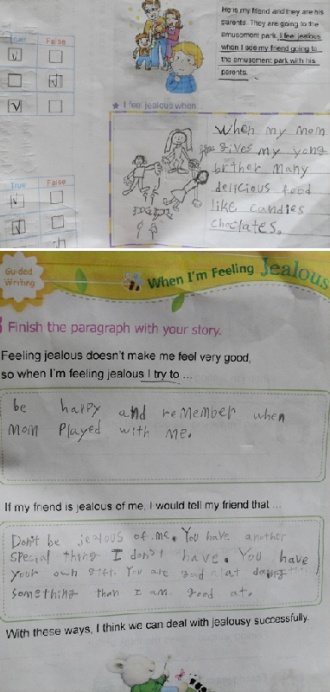 He is my friend and they are his
parents. They are going to the
amusement park. I feel jealous
when I see my friend going to
the amusement park with his
parents.
True False
★ I feel jealous when...
When my mom
gives my yong
brther many
delicious food
like candies
choclates.
True False
Guided
Writing
When I'm Feeling Jealous
Finish the paragraph with your story.
Feeling jealous doesn't make me feel very good,
so when I'm feeling jealous I try to ...
be happy and remember when
Mom Played with me.
If my friend is jealous of me, I would tell my friend that ...
Don't be jealous of me. You have another
special thing I don't have. You have
your own gift. You are good at doing
something than I am good at.
With these ways, I think we can deal with jealousy successfully.